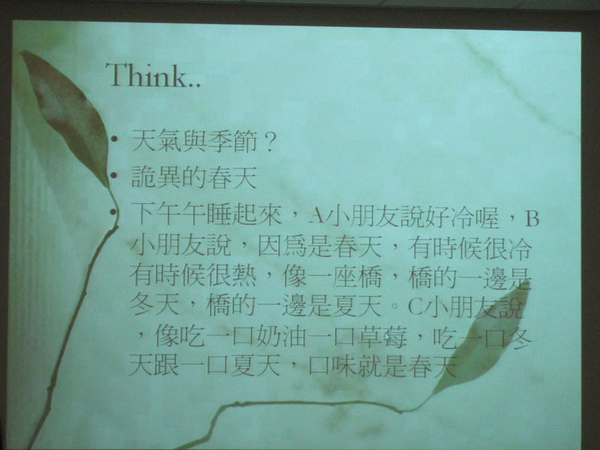 Think..
• 天氣與季節？
• 詭異的春天
• 下午午睡起來，A小朋友說好冷喔，B
小朋友說，因為是春天，有時候很冷
有時候很熱，像一座橋，橋的一邊是
冬天，橋的一邊是夏天。C小朋友說
，像吃一口奶油一口草莓，吃一口冬
天跟一口夏天，口味就是春天